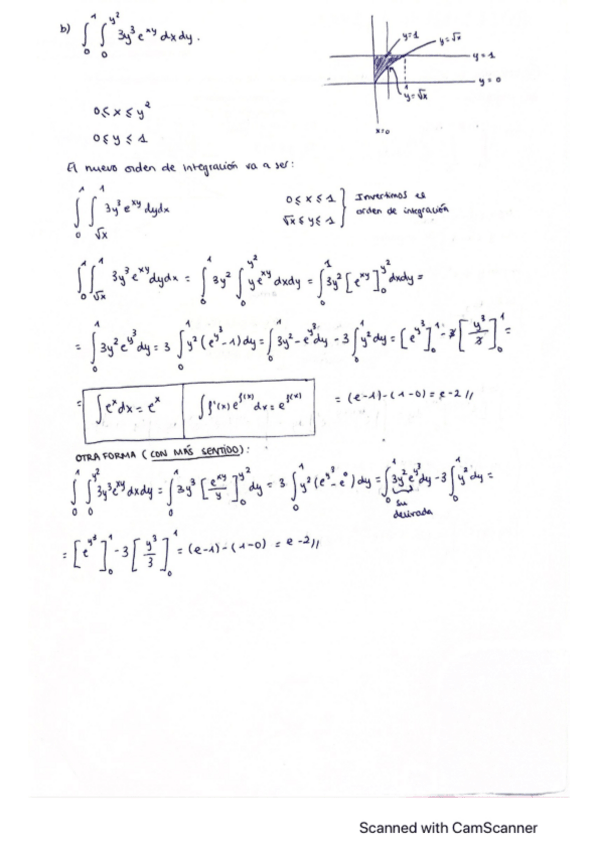 b) ∫₀¹ ∫₀^{y²} 3y³ e^{xy} dx dy.
y=1
y=√x
y=1
y=0
1
y=√x
x=0
0≤x≤y²
0≤y≤1
El nuevo orden de integración va a ser:
∫₀¹ ∫_{√x}¹ 3y³ e^{xy} dy dx
0≤x≤1
√x≤y≤1
Invertimos el
orden de integración
∫₀¹ ∫_{√x}¹ 3y³ e^{xy} dy dx = ∫₀¹ 3y² ∫₀^{y²} y e^{xy} dx dy = ∫₀¹ 3y² [e^{xy}]₀^{y²} dx dy =
= ∫₀¹ 3y² e^{y³} dy = 3 ∫₀¹ y² (e^{y³} - 1) dy = ∫₀¹ 3y² - e^{y³} dy - 3 ∫₀¹ y² dy = [e^{y³}]₀¹ - 3 [y³/3]₀¹ =
= ∫ e^x dx = e^x
∫ f'(x) e^{f(x)} dx = e^{f(x)}
= (e-1)-(1-0) = e-2 //
OTRA FORMA (CON MÁS SENTIDO):
∫₀¹ ∫₀^{y²} 3y³ e^{xy} dx dy = ∫₀¹ 3y³ [e^{xy}/y]₀^{y²} dy = 3 ∫₀¹ y² (e^{y³} - e⁰) dy = ∫₀¹ 3y² e^{y³} dy - 3 ∫₀¹ y² dy =
su
derivada
= [e^{y³}]₀¹ - 3 [y³/3]₀¹ = (e-1)-(1-0) = e-2 //
Scanned with CamScanner